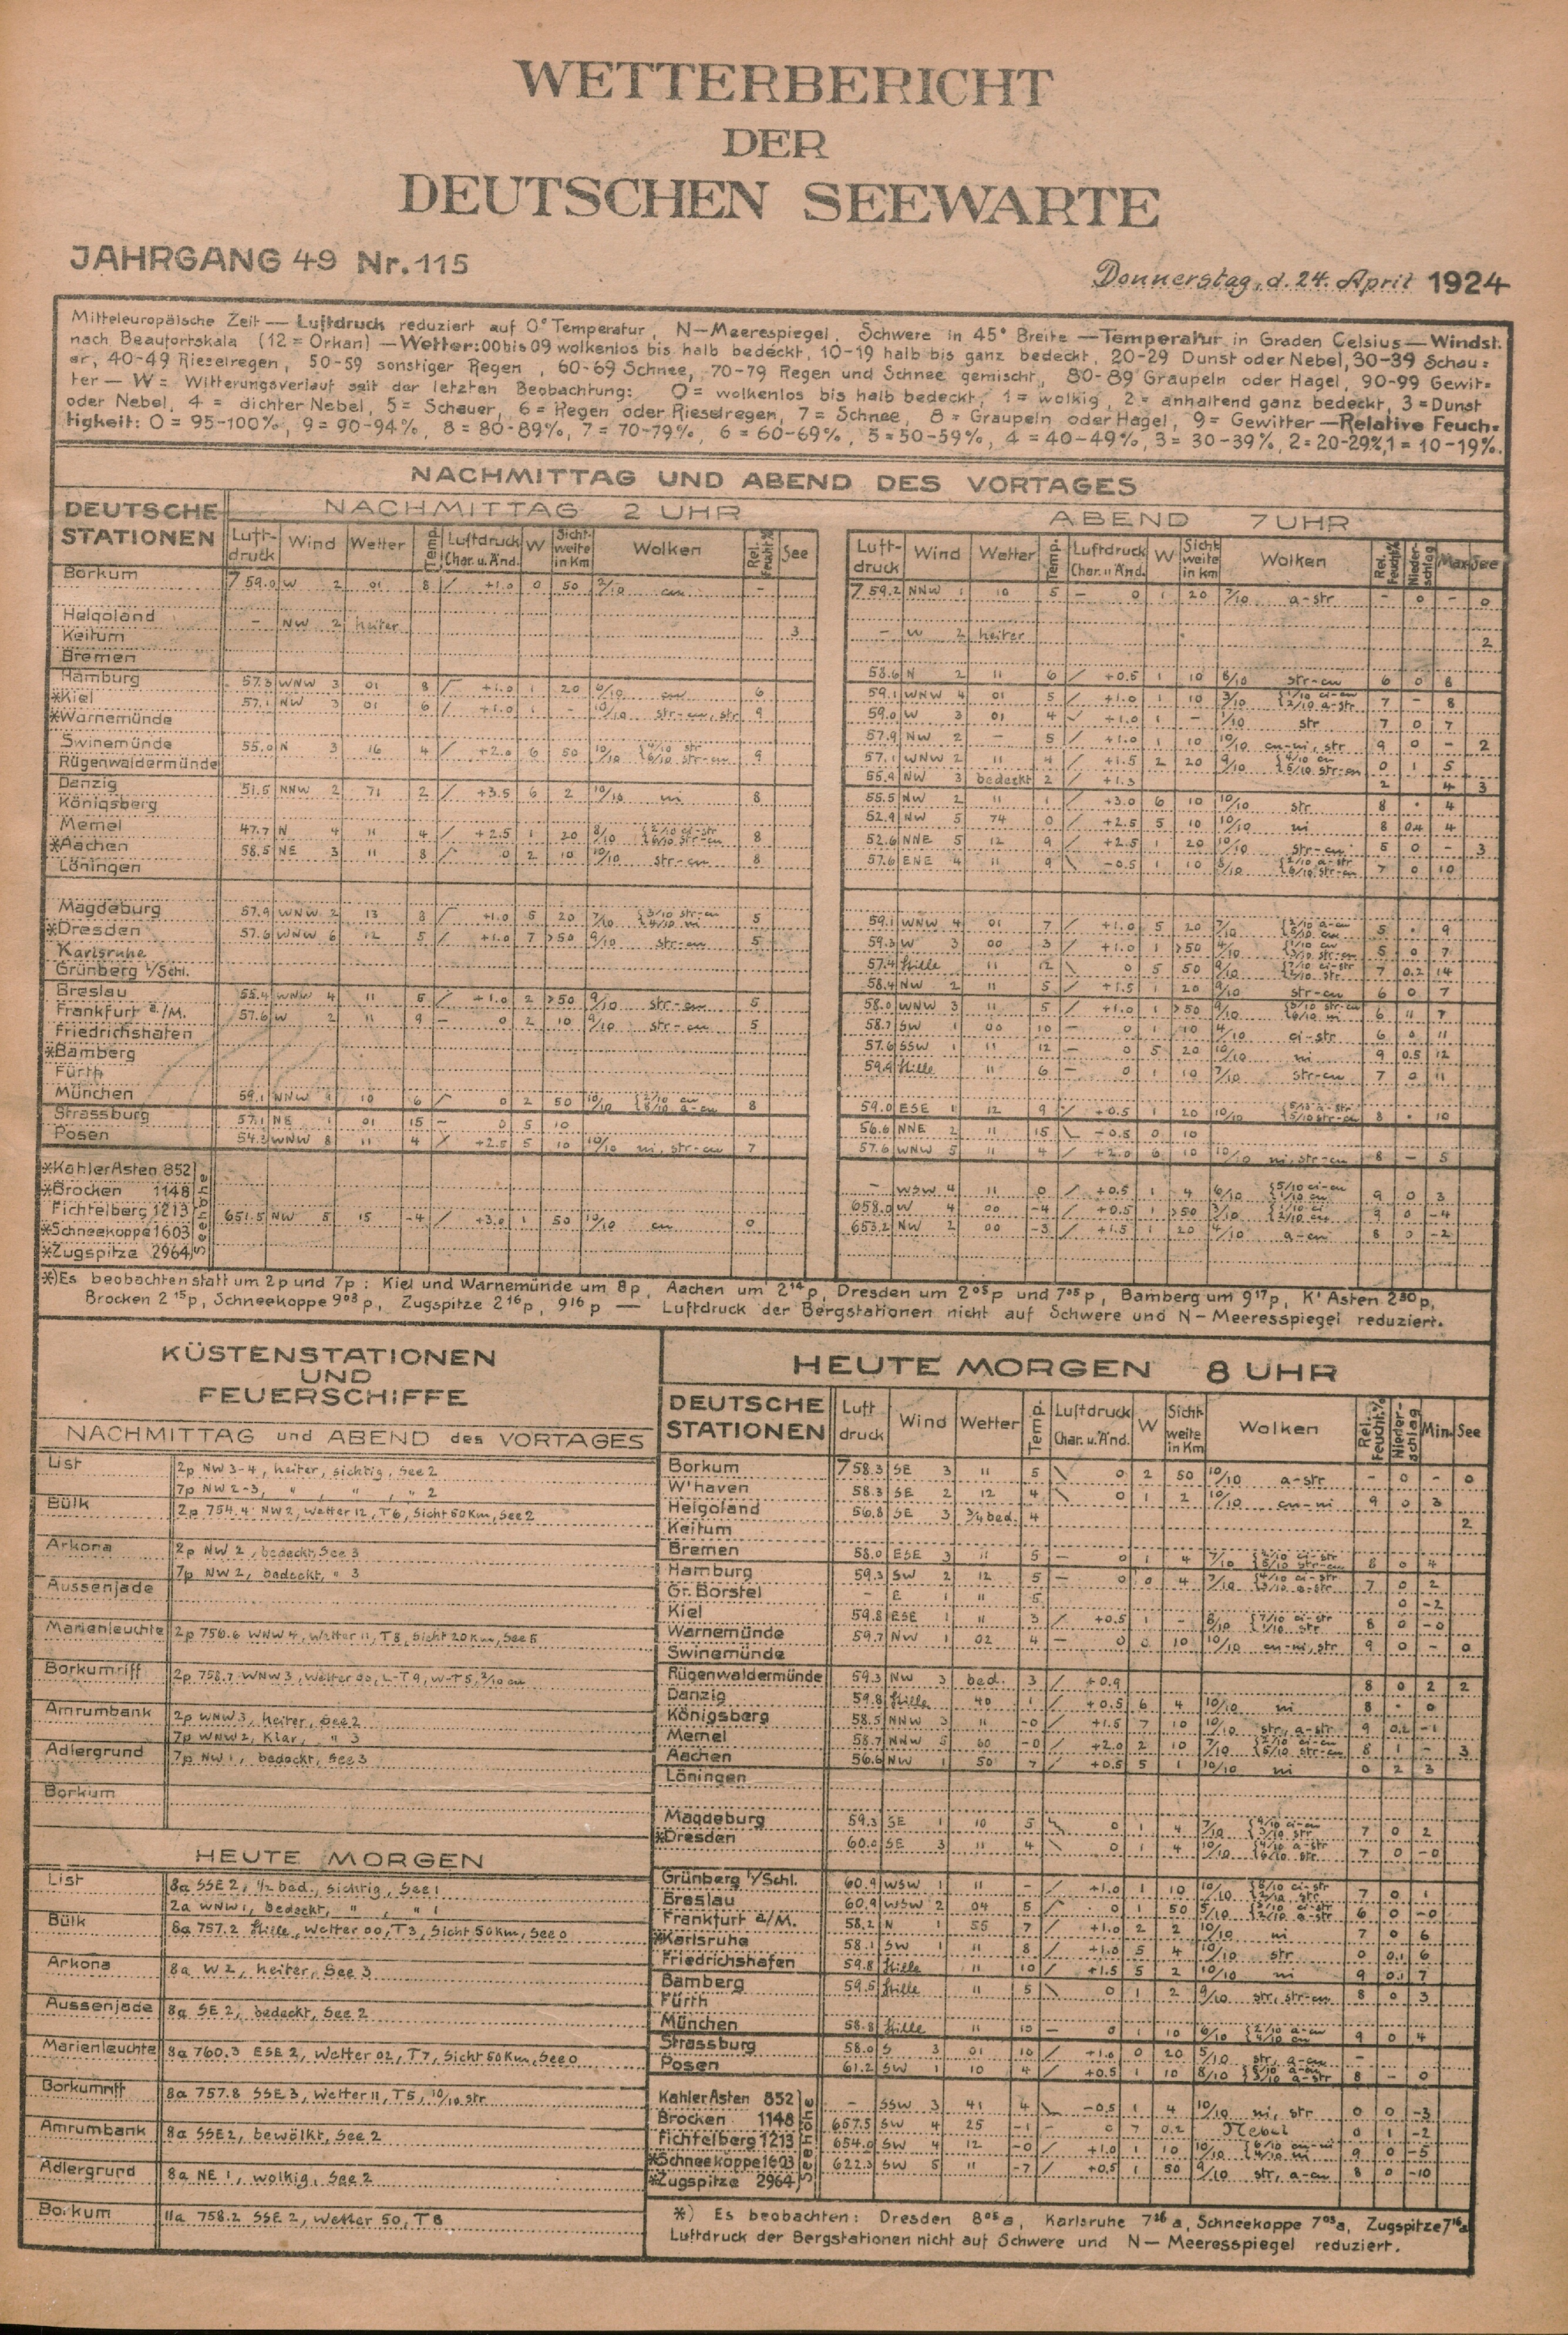 WETTERBERICHT
DER
DEUTSCHEN SEEWARTE
JAHRGANG 49 Nr. 115
Donnerstag, d. 24. April 1924
Mitteleuropäische Zeit — Luftdruck reduziert auf 0° Temperatur, N—Meerespiegel, Schwere in 45° Breite — Temperatur in Graden Celsius — Windst.
nach Beaufortskala (12 = Orkan) — Wetter: 00 bis 09 wolkenlos bis halb bedeckt, 10-19 halb bis ganz bedeckt, 20-29 Dunst oder Nebel, 30-39 Schau=
er, 40-49 Rieselregen, 50-59 sonstiger Regen, 60-69 Schnee, 70-79 Regen und Schnee gemischt, 80-89 Graupeln oder Hagel, 90-99 Gewit=
ter — W = Witterungsverlauf seit der letzten Beobachtung: 0 = wolkenlos bis halb bedeckt, 1 = wolkig, 2 = anhaltend ganz bedeckt, 3 = Dunst
oder Nebel, 4 = dichter Nebel, 5 = Schauer, 6 = Regen oder Rieselregen, 7 = Schnee, 8 = Graupeln oder Hagel, 9 = Gewitter — Relative Feuch=
tigkeit: 0 = 95-100%, 9 = 90-94%, 8 = 80-89%, 7 = 70-79%, 6 = 60-69%, 5 = 50-59%, 4 = 40-49%, 3 = 30-39%, 2 = 20-29%, 1 = 10-19%.
NACHMITTAG UND ABEND DES VORTAGES
DEUTSCHE STATIONEN
NACHMITTAG 2 UHR
Luft-druck Wind Wetter Temp. Luftdruck Char. u. Änd. W Sicht-weite in Km Wolken Rel. Feucht.% See
ABEND 7 UHR
Luft-druck Wind Wetter Temp. Luftdruck Char. u. Änd. W Sicht weite in km Wolken Rel. Feucht.% Nieder-schlag Max. See
Borkum 759.0 W 2 01 8 / +1.0 0 50 2/10 cu -
759.2 NNW 1 10 5 — 0 1 20 7/10 a-str - 0 - 0
Helgoland - NW 2 heiter 3
- W 2 heiter 2
Keitum
Bremen
58.6 N 2 11 6 / +0.5 1 10 8/10 str-cu 6 0 8
Hamburg 57.3 WNW 3 01 8 +1.0 1 20 6/10 cu 6
59.1 WNW 4 01 5 / +1.0 1 10 3/10 1/10 ci-cu 2/10 a-str 7 - 8
*Kiel 57.1 NW 3 01 6 / +1.0 1 - 10/10 str-cu, str 9
59.0 W 3 01 4 +1.0 1 - 1/10 str 7 0 7
*Warnemünde
57.9 NW 2 - 5 / +1.0 1 10 10/10 cu-ni, str 9 0 - 2
Swinemünde 55.0 N 3 16 4 / +2.0 6 50 10/10 4/10 str 6/10 str-cu 9
57.1 WNW 2 11 4 / +1.5 2 20 9/10 4/10 cu 5/10 str-cu 0 1 5
Rügenwaldermünde
55.9 NW 3 bedeckt 2 / +1.3 2 4 3
Danzig 51.5 NNW 2 71 2 / +3.5 6 2 10/10 ni 8
55.5 NW 2 11 1 / +3.0 6 10 10/10 str 8 • 4
Königsberg
52.9 NW 5 74 0 / +2.5 5 10 10/10 ni 8 0.4 4
Memel 47.7 N 4 11 4 / +2.5 1 20 8/10 2/10 ci-str 6/10 str-cu 8
52.6 NNE 5 12 9 / +2.5 1 20 10/10 str-cu 5 0 - 3
*Aachen 58.5 NE 3 11 8 0 2 10 10/10 str-cu 8
57.6 ENE 4 11 9 \ -0.5 1 10 8/10 2/10 a-str 6/10 str-cu 7 0 10
Löningen
Magdeburg 57.9 WNW 2 13 8 +1.0 5 20 7/10 3/10 str-cu 4/10 ni 5
59.1 WNW 4 01 7 / +1.0 5 20 7/10 2/10 a-cu 5/10 cu 5 • 9
*Dresden 57.6 WNW 6 12 5 / +1.0 7 >50 9/10 str-cu 5
59.3 W 3 00 3 / +1.0 1 >50 4/10 1/10 cu 3/10 str-cu 5 0 7
Karlsruhe
57.4 Stille 11 12 \ 0 5 50 9/10 7/10 ci-str 2/10 str 7 0.2 14
Grünberg i/Schl.
58.4 NW 2 11 5 / +1.5 1 20 9/10 str-cu 6 0 7
Breslau 55.4 WNW 4 11 5 / +1.0 2 >50 9/10 str-cu 5
58.0 WNW 3 11 5 / +1.0 1 >50 9/10 str-cu ni 6 11 7
Frankfurt a./M. 57.6 W 2 11 9 — 0 2 10 9/10 str-cu 5
58.7 SW 1 00 10 — 0 1 10 4/10 ci-str 6 0 11
Friedrichshafen
57.6 SSW 1 11 12 — 0 5 20 10/10 ni 9 0.5 12
*Bamberg
59.9 Stille 11 6 — 0 1 10 7/10 str-cu 7 0 11
Fürth
München 59.1 NNW 4 10 6 0 2 50 10/10 2/10 cu 8/10 a-cu 8
59.0 ESE 1 12 9 +0.5 1 20 10/10 5/10 a-str 5/10 str-cu 8 • 10
Strassburg 57.1 NE 1 01 15 — 0 5 10
56.6 NNE 2 11 15 \ -0.5 0 10
Posen 54.3 WNW 8 11 4 +2.5 5 10 10/10 ni, str-cu 7
57.6 WNW 5 11 4 / +2.0 6 10 10/10 ni, str-cu 8 — 5
*Kahler Asten 852 Seehöhe
- WSW 4 11 0 / +0.5 1 4 6/10 5/10 ci-cu 1/10 cu 9 0 3
*Brocken 1148
658.0 W 4 00 -4 / +0.5 1 >50 3/10 1/10 ci 2/10 cu 9 0 -4
Fichtelberg 1213 651.5 NW 5 15 -4 / +3.0 1 50 10/10 cu 0
653.2 NW 2 00 -3 / +1.5 1 20 4/10 a-cu 8 0 -2
*Schneekoppe 1603
*Zugspitze 2964
*) Es beobachten statt um 2p und 7p: Kiel und Warnemünde um 8p, Aachen um 2¹⁴p, Dresden um 2⁰⁵p und 7⁰⁵p, Bamberg um 9¹⁷p, K' Asten 2³⁰p,
Brocken 2¹⁵p, Schneekoppe 9⁰³p, Zugspitze 2¹⁶p, 9¹⁶p — Luftdruck der Bergstationen nicht auf Schwere und N-Meeresspiegel reduziert.
KÜSTENSTATIONEN
UND
FEUERSCHIFFE
NACHMITTAG und ABEND des VORTAGES
List 2p NW 3-4, heiter, sichtig, See 2
7p NW 2-3, " , " , " 2
Bülk 2p 754.4 NW2, Wetter 12, T6, Sicht 50 Km, See 2
Arkona 2p NW 2, bedeckt, See 3
7p NW 2, bedeckt, " 3
Aussenjade
Marienleuchte 2p 756.6 WNW 4, Wetter 11, T8, Sicht 20 Km, See 5
Borkumriff 2p 758.7 WNW 3, Wetter 00, L-T 9, W-T 5, 2/10 cu
Amrumbank 2p WNW3, heiter, See 2
7p WNW2, Klar, " 3
Adlergrund 7p NW 1, bedeckt, See 3
Borkum
HEUTE MORGEN
List 8a SSE 2, 1/2 bed., sichtig, See 1
2a WNW1, bedeckt, " , " 1
Bülk 8a 757.2 Stille, Wetter 00, T3, Sicht 50 Km, See 0
Arkona 8a W2, heiter, See 3
Aussenjade 8a SE 2, bedeckt, See 2
Marienleuchte 8a 760.3 ESE 2, Wetter 02, T7, Sicht 50 Km, See 0
Borkumriff 8a 757.8 SSE 3, Wetter 11, T5, 10/10 str
Amrumbank 8a SSE2, bewölkt, See 2
Adlergrund 8a NE 1, wolkig, See 2
Borkum 11a 758.2 SSE 2, Wetter 50, T8
HEUTE MORGEN 8 UHR
DEUTSCHE STATIONEN Luft druck Wind Wetter Temp. Luftdruck Char. u. Änd. W Sicht-weite in Km Wolken Rel. Feucht.% Nieder-schlag Min. See
Borkum 758.3 SE 3 11 5 \ 0 2 50 10/10 a-str - 0 - 0
W'haven 58.3 SE 2 12 4 \ 0 1 2 10/10 cu-ni 9 0 3
Helgoland 56.8 SE 3 3/4 bed. 4 2
Keitum
Bremen 58.0 ESE 3 11 5 — 0 1 4 7/10 ci-str 5/10 str-cu 8 0 4
Hamburg 59.3 SW 2 12 5 — 0 0 4 7/10 4/10 ci-str 3/10 a-str 7 0 2
Gr. Borstel - E 1 11 5 0 -2
Kiel 59.8 ESE 1 11 3 / +0.5 1 - 8/10 7/10 ci-str 1/10 str 8 0 -0
Warnemünde 59.7 NW 1 02 4 — 0 0 10 10/10 cu-ni, str 9 0 - 0
Swinemünde
Rügenwaldermünde 59.3 NW 3 bed. 3 / +0.9 8 0 2 2
Danzig 59.8 Stille 40 1 / +0.5 6 4 10/10 ni 8 • 0
Königsberg 58.5 NNW 3 11 -0 / +1.5 7 10 10/10 str, a-str 9 0.2 -1
Memel 58.7 NNW 5 60 -0 / +2.0 2 10 7/10 2/10 ci-cu 5/10 str-cu 8 1 - 3
Aachen 56.6 NW 1 50 7 / +0.5 5 1 10/10 ni 0 2 3
Löningen
Magdeburg 59.3 SE 1 10 5 0 1 4 7/10 4/10 ci-cu 3/10 str 7 0 2
*Dresden 60.0 SE 3 11 4 \ 0 1 4 10/10 4/10 a-str 6/10 str 7 0 -0
Grünberg i/Schl. 60.9 WSW 1 11 - / +1.0 1 10 10/10 8/10 ci-str 2/10 str 7 0 1
Breslau 60.9 WSW 2 04 5 0 1 50 5/10 3/10 ci-str 2/10 a-str 6 0 -0
Frankfurt a/M. 58.2 N 1 55 7 / +1.0 2 2 10/10 ni 7 0 6
*Karlsruhe 58.1 SW 1 11 8 / +1.0 5 4 10/10 str 0 0.1 6
Friedrichshafen 59.8 Stille 11 10 / +1.5 5 2 10/10 ni 9 0.1 7
Bamberg 59.5 Stille 11 5 \ 0 1 2 9/10 str, str-cu 8 0 3
Fürth
München 58.8 Stille 11 10 — 0 1 10 6/10 2/10 a-cu 4/10 cu 9 0 4
Strassburg 58.0 S 3 01 10 / +1.0 0 20 5/10 str, a-cu -
Posen 61.2 SW 1 10 4 / +0.5 1 10 8/10 5/10 a-cu 3/10 a-str 8 - 0
Kahler Asten 852 Seehöhe - SSW 3 41 4 -0.5 1 4 10/10 ni, str 0 0 -3
Brocken 1148 657.5 SW 4 25 -1 - 0 7 0.2 Nebel 0 1 -2
Fichtelberg 1213 654.0 SW 4 12 -0 / +1.0 1 10 10/10 6/10 cu-ni 4/10 ni 9 0 -5
*Schneekoppe 1603 622.3 SW 5 11 -7 / +0.5 1 50 9/10 str, a-cu 8 0 -10
*Zugspitze 2964
*) Es beobachten: Dresden 8⁰⁵a, Karlsruhe 7²⁶a, Schneekoppe 7⁰³a, Zugspitze 7¹⁶a
Luftdruck der Bergstationen nicht auf Schwere und N—Meeresspiegel reduziert.